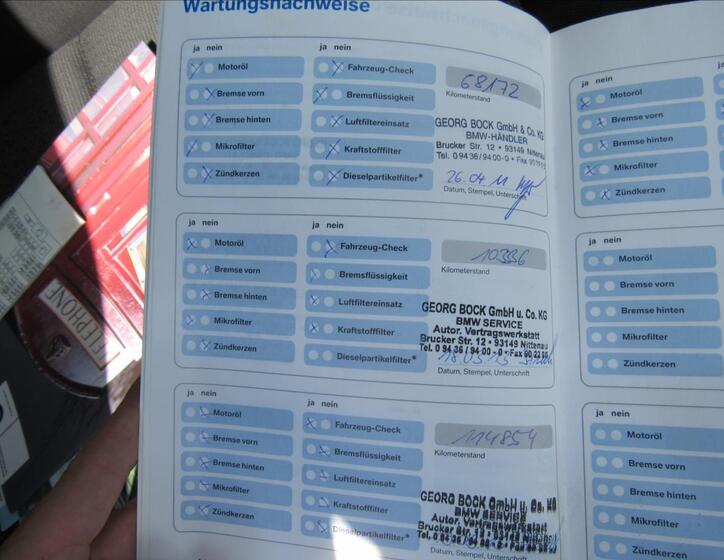 Wartungsnachweise
ja nein
ja nein
Motoröl
Fahrzeug-Check
Bremse vorn
Bremsflüssigkeit
Bremse hinten
Luftfiltereinsatz
Mikrofilter
Kraftstofffilter
Zündkerzen
Dieselpartikelfilter*
68172
Kilometerstand
GEORG BOCK GmbH & Co. KG
BMW-HÄNDLER
Brucker Str. 12 • 93149 Nittenau
Tel. 0 94 36/94 00-0 • Fax
26.04.11
Datum, Stempel, Unterschrift
ja nein
ja nein
Motoröl
Fahrzeug-Check
Bremse vorn
Bremsflüssigkeit
Bremse hinten
Luftfiltereinsatz
Mikrofilter
Kraftstofffilter
Zündkerzen
Dieselpartikelfilter*
Kilometerstand
GEORG BOCK GmbH u. Co. KG
BMW SERVICE
Autor. Vertragswerkstatt
Brucker Str. 12 • 93149 Nittenau
Tel. 0 94 36 / 94 00 - 0 • Fax
Datum, Stempel, Unterschrift
ja nein
ja nein
Motoröl
Fahrzeug-Check
Bremse vorn
Bremsflüssigkeit
Bremse hinten
Luftfiltereinsatz
Mikrofilter
Kraftstofffilter
Zündkerzen
Dieselpartikelfilter*
114854
Kilometerstand
GEORG BOCK GmbH u. Co. KG
BMW SERVICE
Autor. Vertragswerkstatt
Brucker Str. 12
ja nein
Motoröl
Bremse vorn
Bremse hinten
Mikrofilter
Zündkerzen
ja nein
Motoröl
Bremse vorn
Bremse hinten
Mikrofilter
Zündkerzen
ja nein
Motoröl
Bremse vorn
Bremse hinten
Mikrofilter
Zündkerzen
TELEPHONE